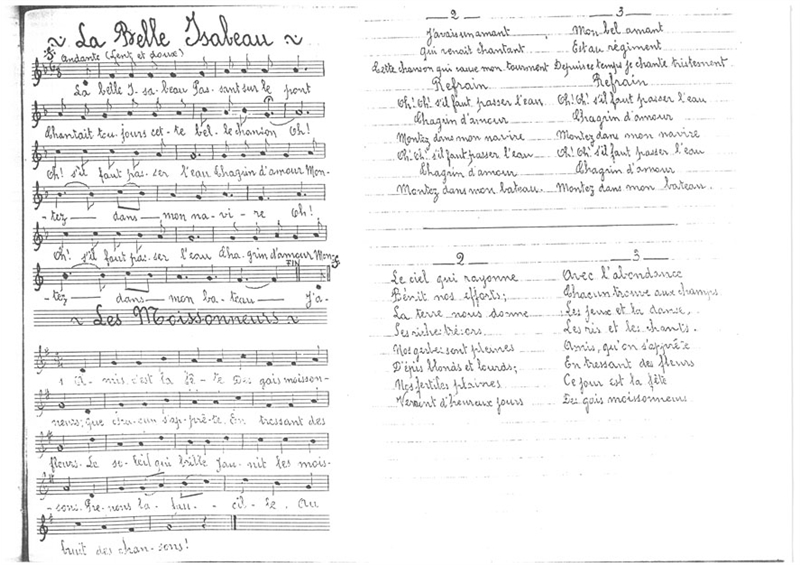 ~ La Belle Isabeau ~
Andante (Lent et doux)
La belle I-sa-beau Pas-sant sur le pont
Chantait tou-jours cet-te bel-le chanson Oh!
Oh! s'il faut pas-ser l'eau Chagrin d'amour Mon-
-tez dans mon na-vi-re Oh!
Oh! s'il faut pas-ser l'eau Cha-grin d'amour Mon-
FIN
tez dans mon ba-teau J'a-
~ Les Moissonneurs ~
1 A-mis, c'est la fê-te Des gais moisson-
neurs; Que cha-cun s'ap-prê-te, En tressant des
fleurs. Le so-leil qui brille Jau-nit les mois-
-sons. Pre-nons la fau-cil-le, Au
bruit des chan-sons!
2
J'avais un amant
Qui venait chantant
Cette chanson qui cause mon tourment
Refrain
Oh! Oh! s'il faut passer l'eau
Chagrin d'amour
Montez dans mon navire
Oh! Oh! s'il faut passer l'eau
Chagrin d'amour
Montez dans mon bateau.
3
Mon bel amant
Est au régiment
Depuis ce temps je chante tristement
Refrain
Oh! Oh! s'il faut passer l'eau
Chagrin d'amour
Montez dans mon navire
Oh! Oh! s'il faut passer l'eau
Chagrin d'amour
Montez dans mon bateau.
2
Le ciel qui rayonne
Bénit nos efforts;
La terre nous donne
Ses riches trésors.
Nos gerbes sont pleines
D'épis blonds et lourds;
Nos fertiles plaines
Versent d'heureux jours
3
Avec l'abondance
Chacun trouve aux champs
Les jeux et la danse,
Les ris et les chants.
Amis, qu'on s'apprête
En tressant des fleurs
Ce jour est la fête
Des gais moissonneurs